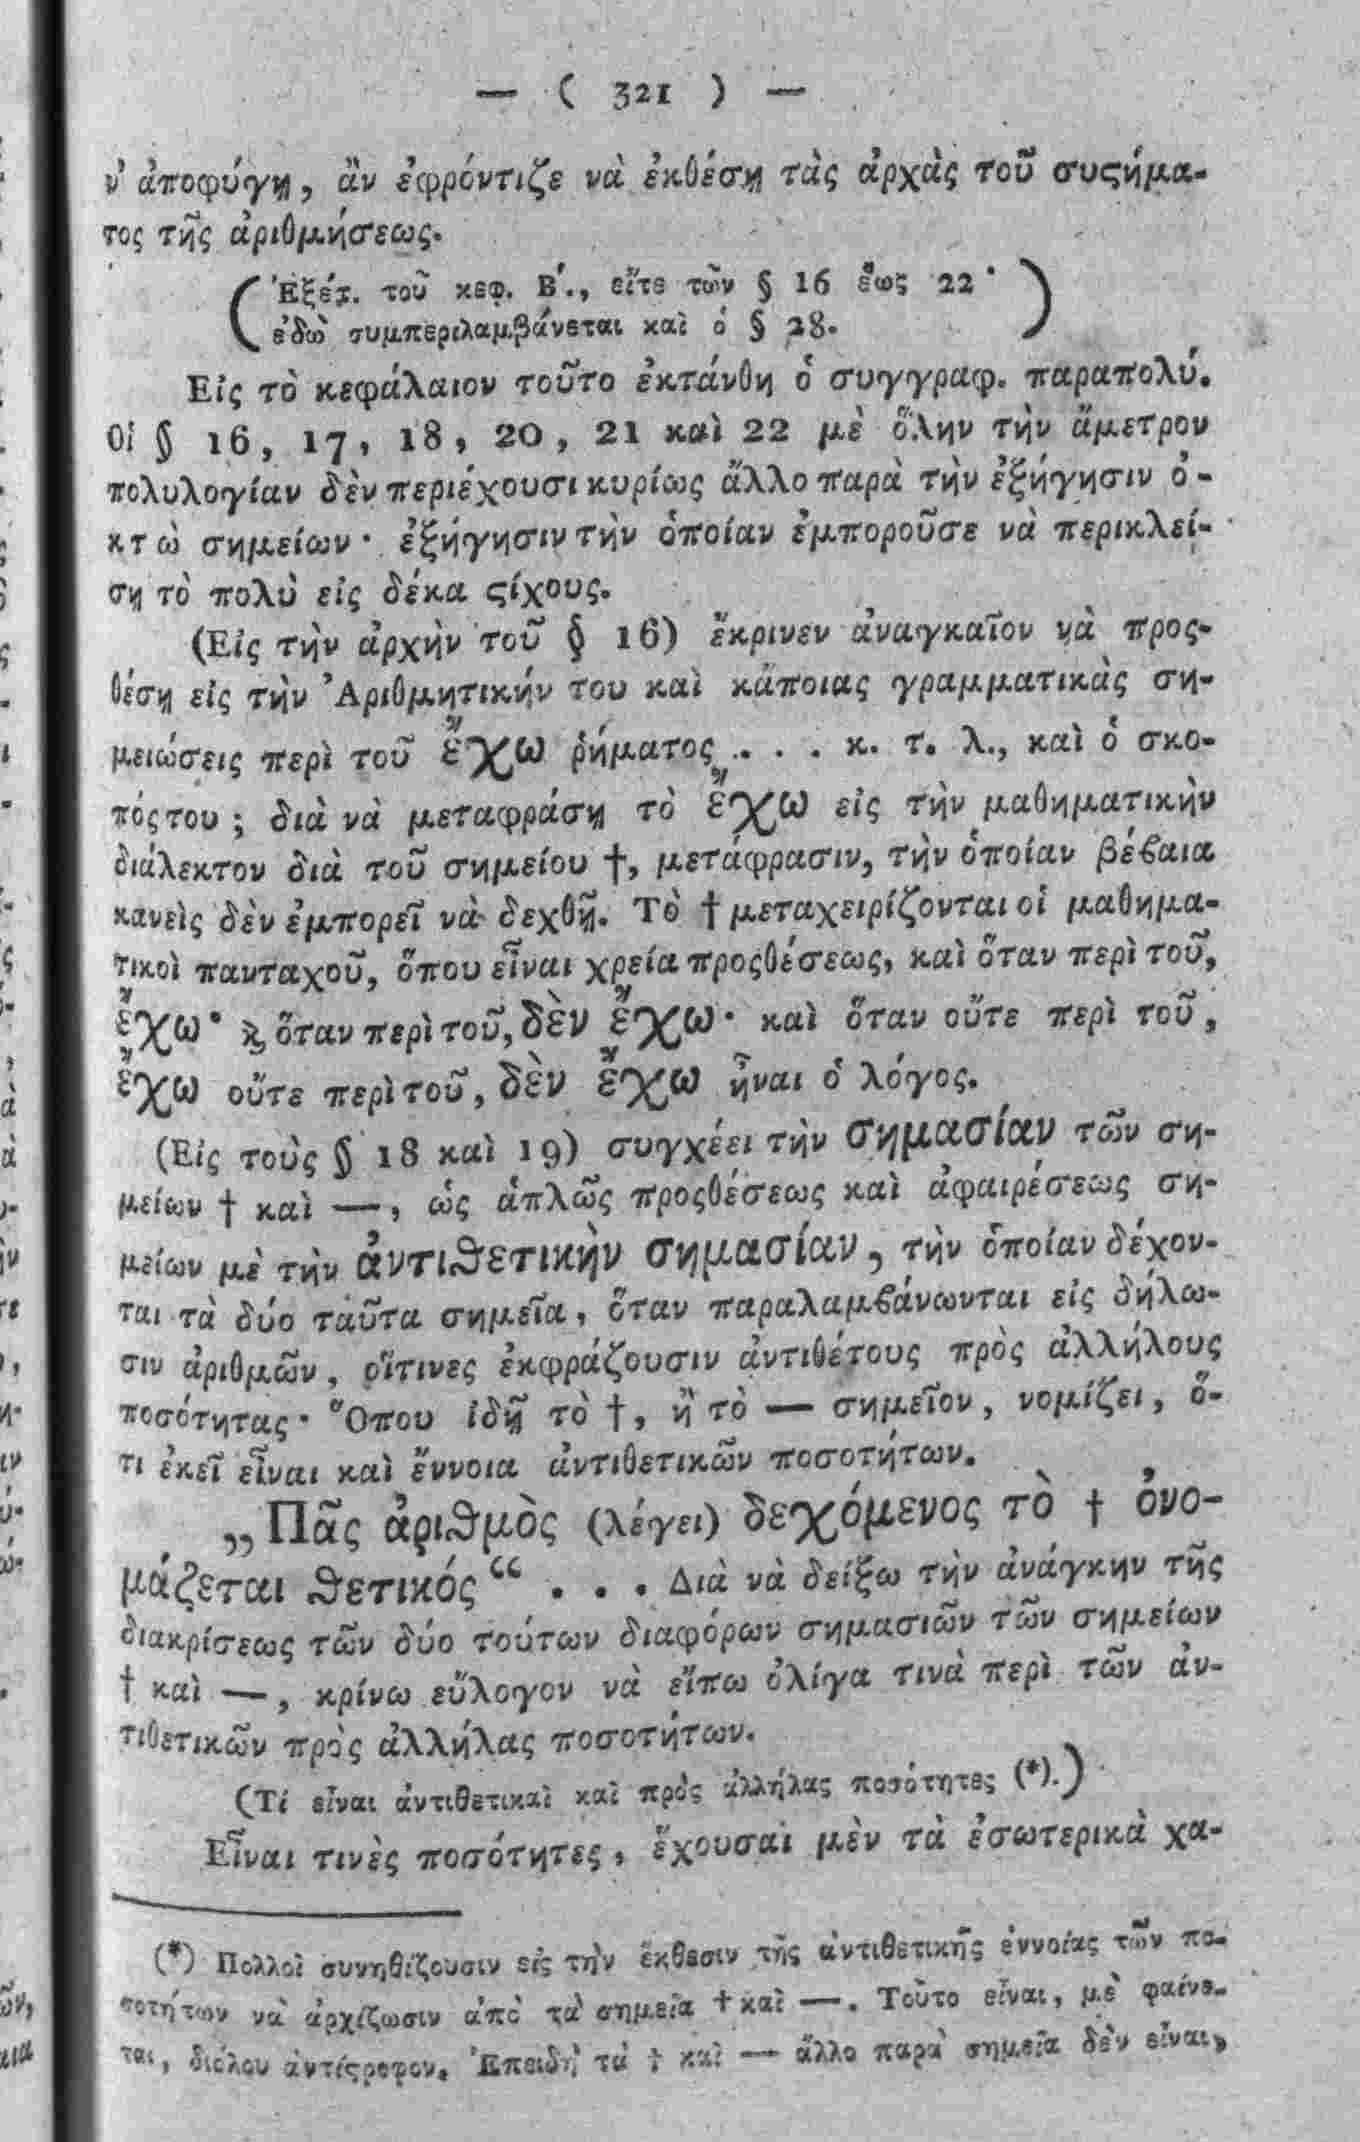 — ( 321 ) —
ν' ἀποφύγῃ, ἂν ἐφρόντιζε νὰ ἐκθέσῃ τὰς ἀρχὰς τοῦ συϛήμα-
τος τῆς ἀριθμήσεως.
(Ἐξέτ. τοῦ κεφ. Β'., εἴτε τῶν § 16 ἕως 22·
ἐδὼ συμπεριλαμβάνεται καὶ ὁ § 28.)
Εἰς τὸ κεφάλαιον τοῦτο ἐκτάνθη ὁ συγγραφ. παραπολύ.
Οἱ § 16, 17, 18, 20, 21 καὶ 22 μὲ ὅλην τὴν ἄμετρον
πολυλογίαν δὲν περιέχουσι κυρίως ἄλλο παρὰ τὴν ἐξήγησιν ὀ-
κτὼ σημείων· ἐξήγησιν τὴν ὁποίαν ἐμποροῦσε νὰ περικλεί-
σῃ τὸ πολὺ εἰς δέκα ϛίχους.
(Εἰς τὴν ἀρχὴν τοῦ § 16) ἔκρινεν ἀναγκαῖον νὰ προς-
θέσῃ εἰς τὴν Ἀριθμητικήν του καὶ κᾄποιας γραμματικὰς ση-
μειώσεις περὶ τοῦ ἔχω ῥήματος . . . κ. τ. λ., καὶ ὁ σκο-
πός του ; διὰ νὰ μεταφράσῃ τὸ ἔχω εἰς τὴν μαθηματικὴν
διάλεκτον διὰ τοῦ σημείου †, μετάφρασιν, τὴν ὁποίαν βέϐαια
κανεὶς δὲν ἐμπορεῖ νὰ δεχθῇ. Τὸ † μεταχειρίζονται οἱ μαθημα-
τικοὶ πανταχοῦ, ὅπου εἶναι χρεία προςθέσεως, καὶ ὅταν περὶ τοῦ,
ἔχω· ϗ ὅταν περὶ τοῦ, δὲν ἔχω· καὶ ὅταν οὔτε περὶ τοῦ,
ἔχω οὔτε περὶ τοῦ, δὲν ἔχω ᾖναι ὁ λόγος.
(Εἰς τοὺς § 18 καὶ 19) συγχέει τὴν σημασίαν τῶν ση-
μείων † καὶ —, ὡς ἁπλῶς προςθέσεως καὶ ἀφαιρέσεως ση-
μείων μὲ τὴν ἀντιϑετικὴν σημασίαν, τὴν ὁποίαν δέχον-
ται τὰ δύο ταῦτα σημεῖα, ὅταν παραλαμϐάνωνται εἰς δήλω-
σιν ἀριθμῶν, οἵτινες ἐκφράζουσιν ἀντιθέτους πρὸς ἀλλήλους
ποσότητας· Ὅπου ἰδῇ τὸ †, ἢ τὸ — σημεῖον, νομίζει, ὅ-
τι ἐκεῖ εἶναι καὶ ἔννοια ἀντιθετικῶν ποσοτήτων.
„Πᾶς ἀριϑμὸς (λέγει) δεχόμενος τὸ † ὀνο-
μάζεται ϑετικός“ . . . Διὰ νὰ δείξω τὴν ἀνάγκην τῆς
διακρίσεως τῶν δύο τούτων διαφόρων σημασιῶν τῶν σημείων
† καὶ —, κρίνω εὔλογον νὰ εἴπω ὀλίγα τινὰ περὶ τῶν ἀν-
τιθετικῶν πρὸς ἀλλήλας ποσοτήτων.
(Τί εἶναι ἀντιθετικαὶ καὶ πρὸς ἀλλήλας ποσότητες (*).)
Εἶναι τινὲς ποσότητες, ἔχουσαι μὲν τὰ ἐσωτερικὰ χα-
(*) Πολλοὶ συνηθίζουσιν εἰς τὴν ἔκθεσιν τῆς ἀντιθετικῆς ἐννοίας τῶν πο-
σοτήτων νὰ ἀρχίζωσιν ἀπὸ τὰ σημεῖα † καὶ —. Τοῦτο εἶναι, μὲ φαίνε-
ται, διόλου ἀντίϛροφον. Ἐπειδὴ τὰ † καὶ — ἄλλο παρὰ σημεῖα δὲν εἶναι,